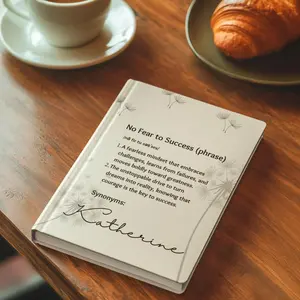 No Fear to Success (phrase)
1. A fearless mindset that embraces
challenges, learns from failures, and
moves boldly toward greatness.
2. The unstoppable drive to turn
dreams into reality, knowing that
courage is the key to success.
Synonyms:
Katherine